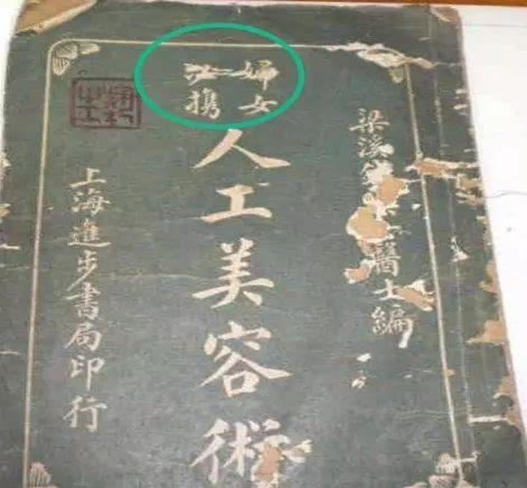 梁溪醫士編
婦女
必携
人工美容術
上海進步書局印行